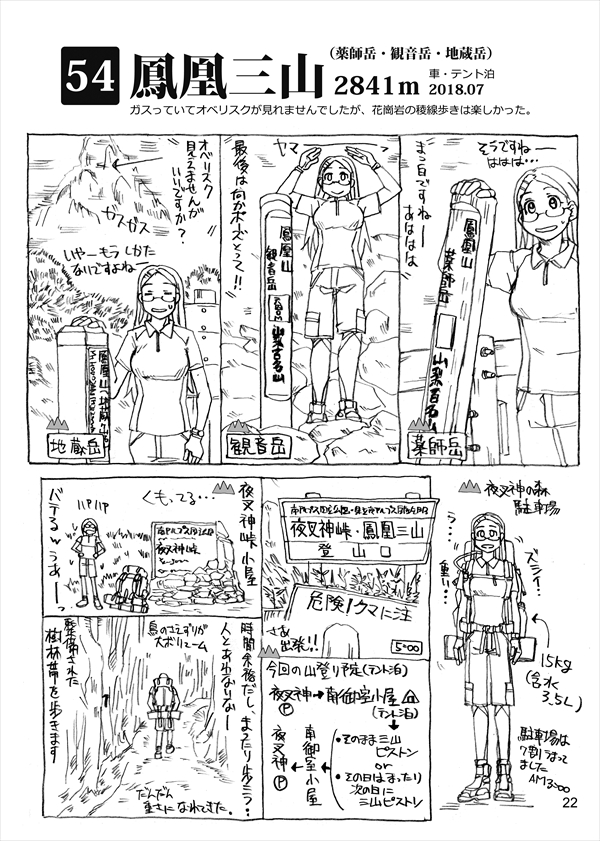 54
鳳凰三山
(薬師岳・観音岳・地蔵岳)
2841m
車・テント泊
2018.07
ガスっていてオベリスクが見れませんでしたが、花崗岩の稜線歩きは楽しかった。
そうですねー
ははは…
まっ白ですねー
あははは
鳳凰山
薬師岳
山梨百名山
薬師岳
ヤマー
最後は何かポーズとって!!
鳳凰山
観音岳
山梨百名山
観音岳
オベリスク
見えませんが
いいですか?
ガスガス
いやーもうしかた
ないですよね
地蔵岳
夜叉神の森
駐車場
ズシィ…
う…
重い…
15kg
(含水
3.5L)
駐車場は
7割うまって
ました
AM3:00
夜叉神峠・鳳凰三山
登山口
危険!クマに注
さあ
出発!!
5:00
夜叉神峠小屋
くもってる…
夜叉神峠
ハァハァ
バテるwうあーっ
時間余裕だし、まったり歩こう?
人とあわないなー
鳥のさえずりが
大ボリューム
整備された
樹林帯を歩きます
だんだん
重さになれてきた。
今回の山登り予定(テント泊)
夜叉神→南御室小屋
P
(テント泊)
・そのまま三山
ピストン
or
・その日はまったり
次の日に
三山ピストン
南御室小屋
夜叉神
P
22